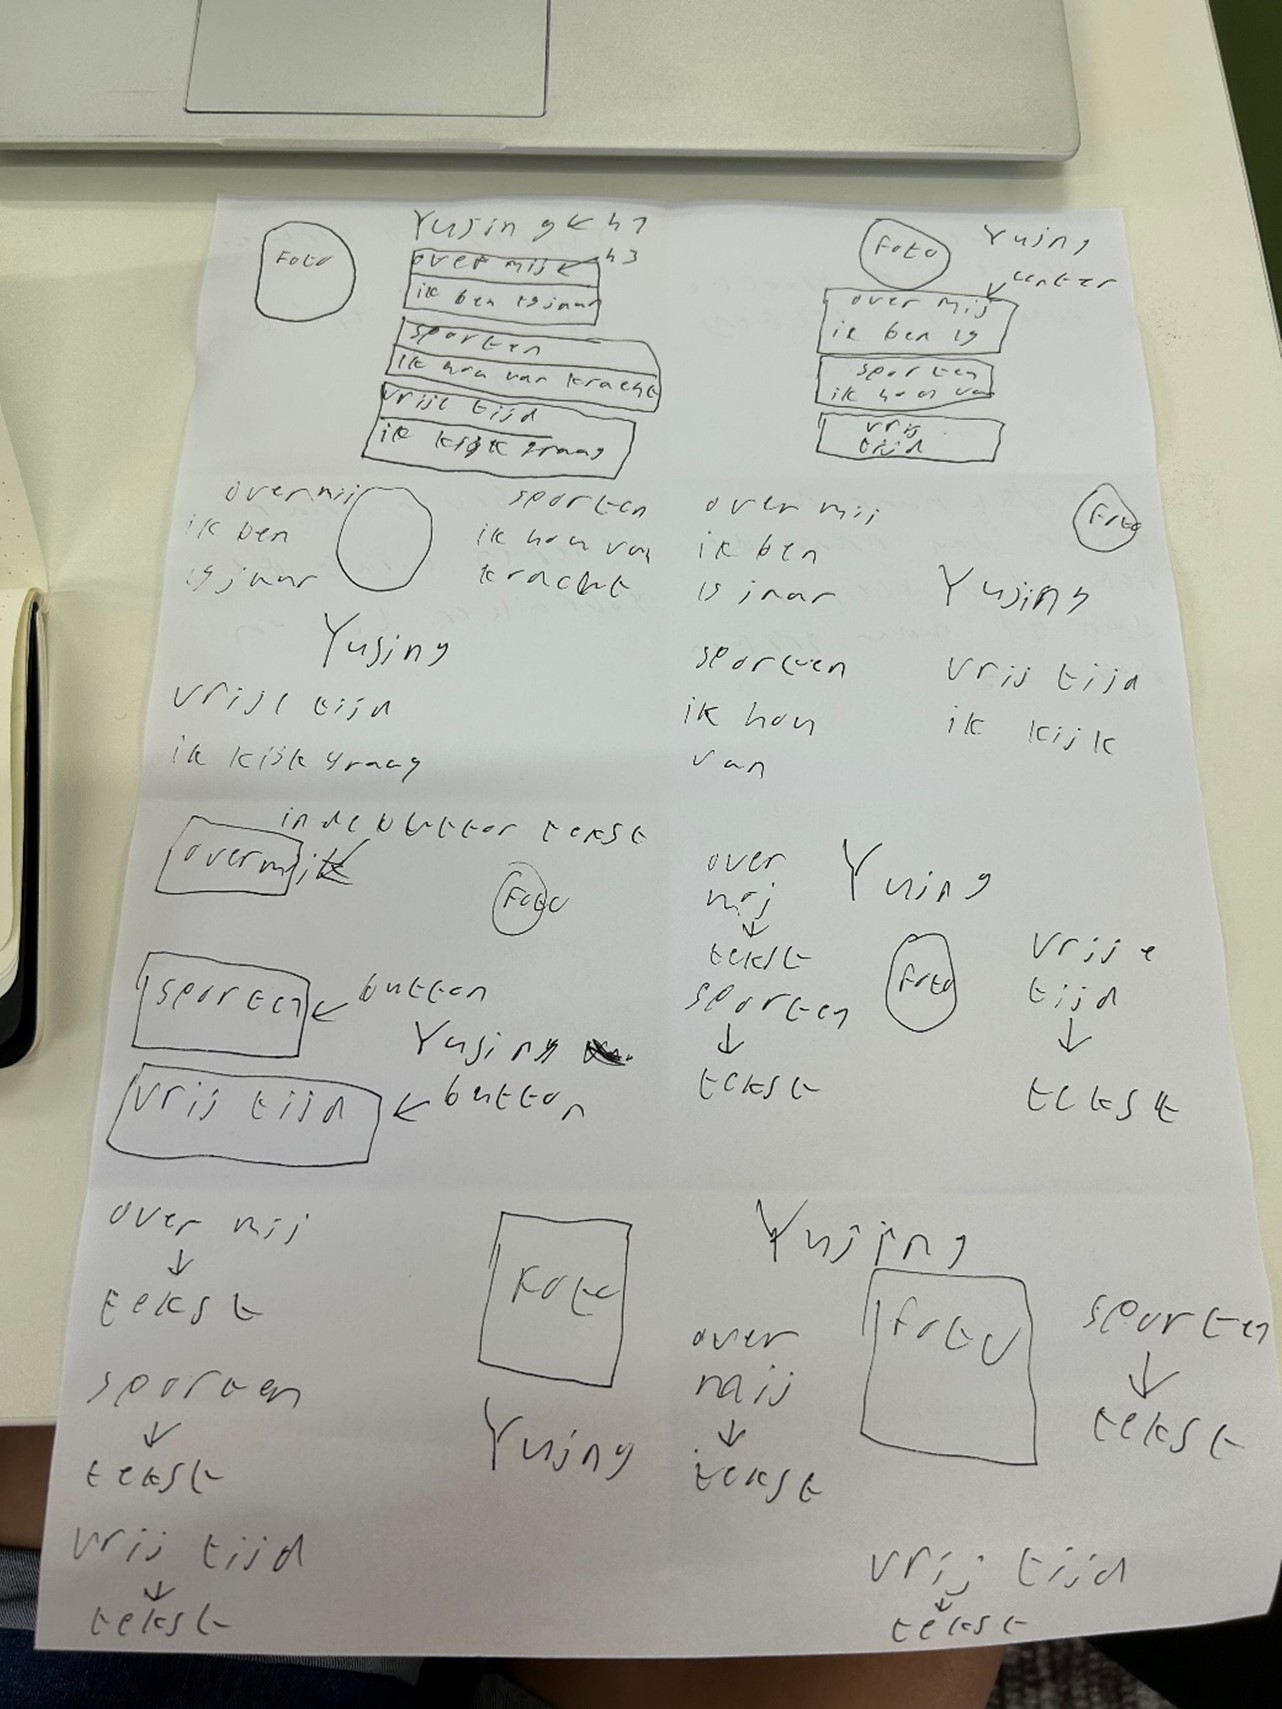 Foto
Yusing ← h1
over mij ← h3
ik ben 19 jaar
sporten
ik hou van kracht
vrije tijd
ik kijk graag
Foto
Yujng
center
over mij
ik ben 19
sporten
ik hou va
vrij
tijd
over mij
ik ben
19 jaar
sporten
ik hou van
kracht
Yusing
vrije tijd
ik kijk graag
over mij
ik ben
19 jaar
Foto
Yusing
sporten
ik hou
van
vrij tijd
ik kijk
in de button tekst
over mij
Foto
sporten
button
Yusing
vrij tijd
button
over
mij
tekst
sporten
tekst
Yujng
Foto
vrije
tijd
tekst
over mij
tekst
sporten
tekst
vrij tijd
tekst
Foto
Yujng
Yujing
over
mij
tekst
foto
sporten
tekst
vrij tijd
tekst